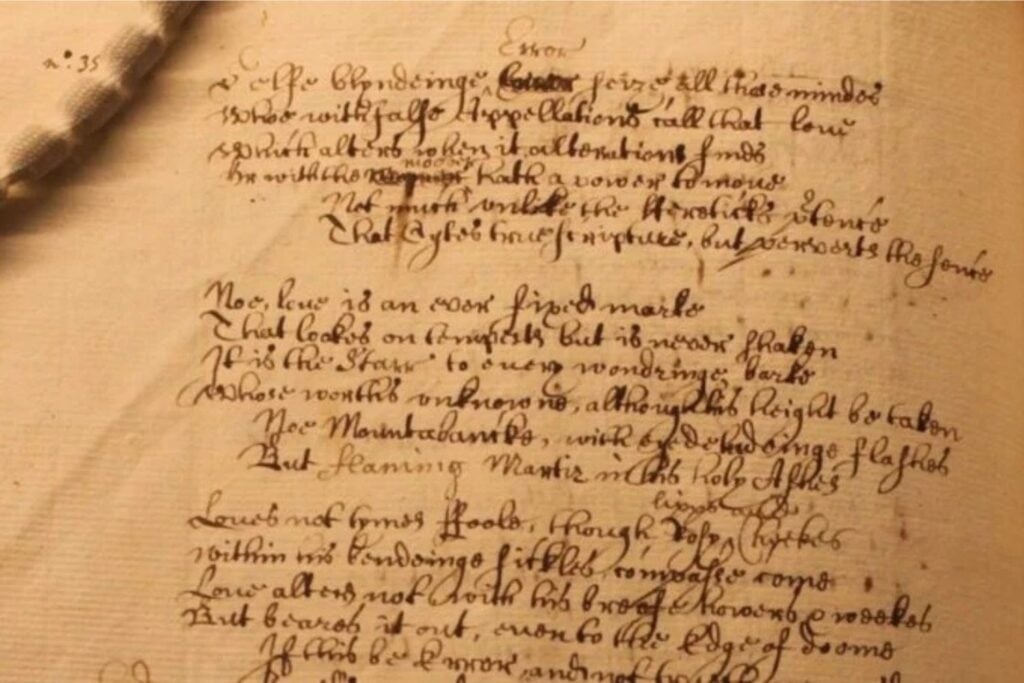 Error
n°. 35
selfe blyndeinge seize all those mindes
Whoe with false Appellations call that love
Which alters when it alterations finds
mover
Or with the hath a power to move
Not much unlike the Hereticks p̄tence
That Cytes true scripture, but perverts the sence
Noe, love is an ever fixed marke
That lookes on tempests but is never shaken
It is the Starr to every wandringe barke
Whose worths unknowne, although his height be taken
Noe Mountabancke, with eye deludeinge flashes
But flaming Martir in his holy Ashes
lipps and
Loves not tymes ffoole, though Rosy Cheekes
Within his bendeinge sickles compasse come
Love alters not with his breefe howers & weekes
But beares it out, even to the Edge of doome
If this be Error and not